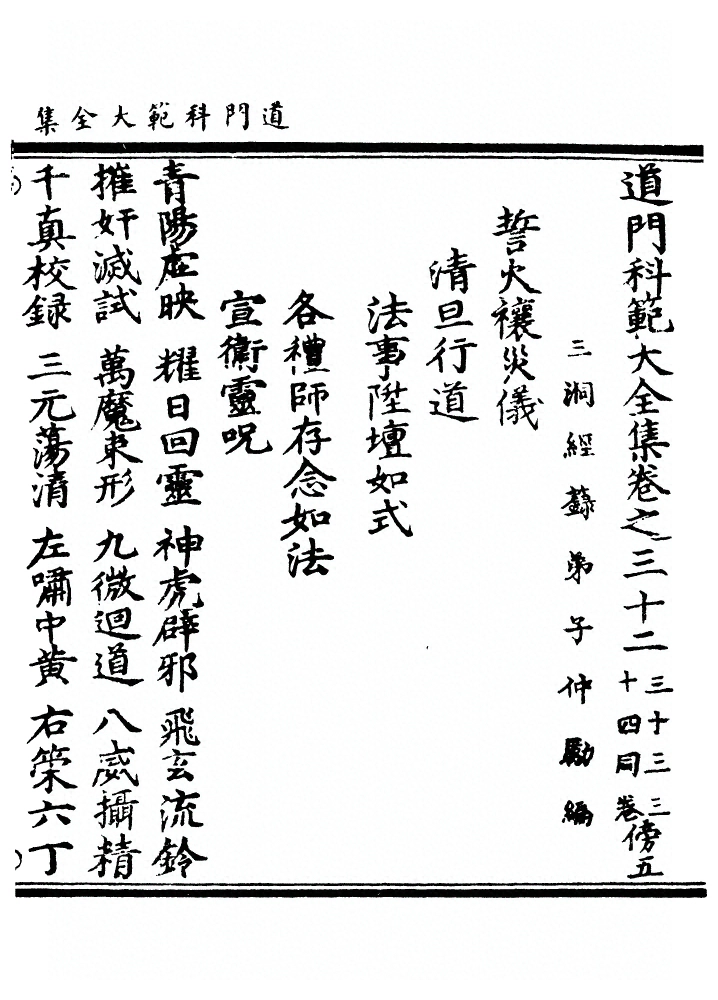 道門科範大全集
道門科範大全集卷之三十二 三十三三十四同卷 傍五
三洞經籙弟子仲勵編
誓火禳災儀
清旦行道
法事陞壇如式
各禮師存念如法
宣衛靈呪
青陽虛映 耀日回靈 神虎辟邪 飛玄流鈴
摧奸滅試 萬魔束形 九微迴道 八威攝精
千真校録 三元蕩清 左嘯中黄 右策六丁